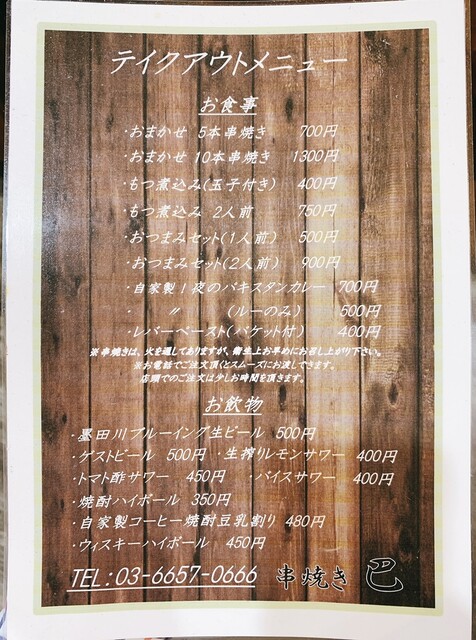 テイクアウトメニュー
お食事
・おまかせ 5本串焼き 700円
・おまかせ 10本串焼き 1300円
・もつ煮込み(玉子付き) 400円
・もつ煮込み 2人前 750円
・おつまみセット(1人前) 500円
・おつまみセット(2人前) 900円
・自家製!夜のパキスタンカレー 700円
・ 〃 (ルーのみ) 500円
・レバーペースト(バケット付) 400円
※串焼きは、火を通してありますが、衛生上お早めにお召し上がり下さい。
※お電話でご注文頂くとスムーズにお渡しできます。
店頭でのご注文は少しお時間を頂きます。
お飲物
・墨田川ブルーイング生ビール 500円
・ゲストビール 500円 ・生搾りレモンサワー 400円
・トマト酢サワー 450円 ・バイスサワー 400円
・焼酎ハイボール 350円
・自家製コーヒー焼酎豆乳割り 480円
・ウィスキーハイボール 450円
TEL:03-6657-0666 串焼き 巴